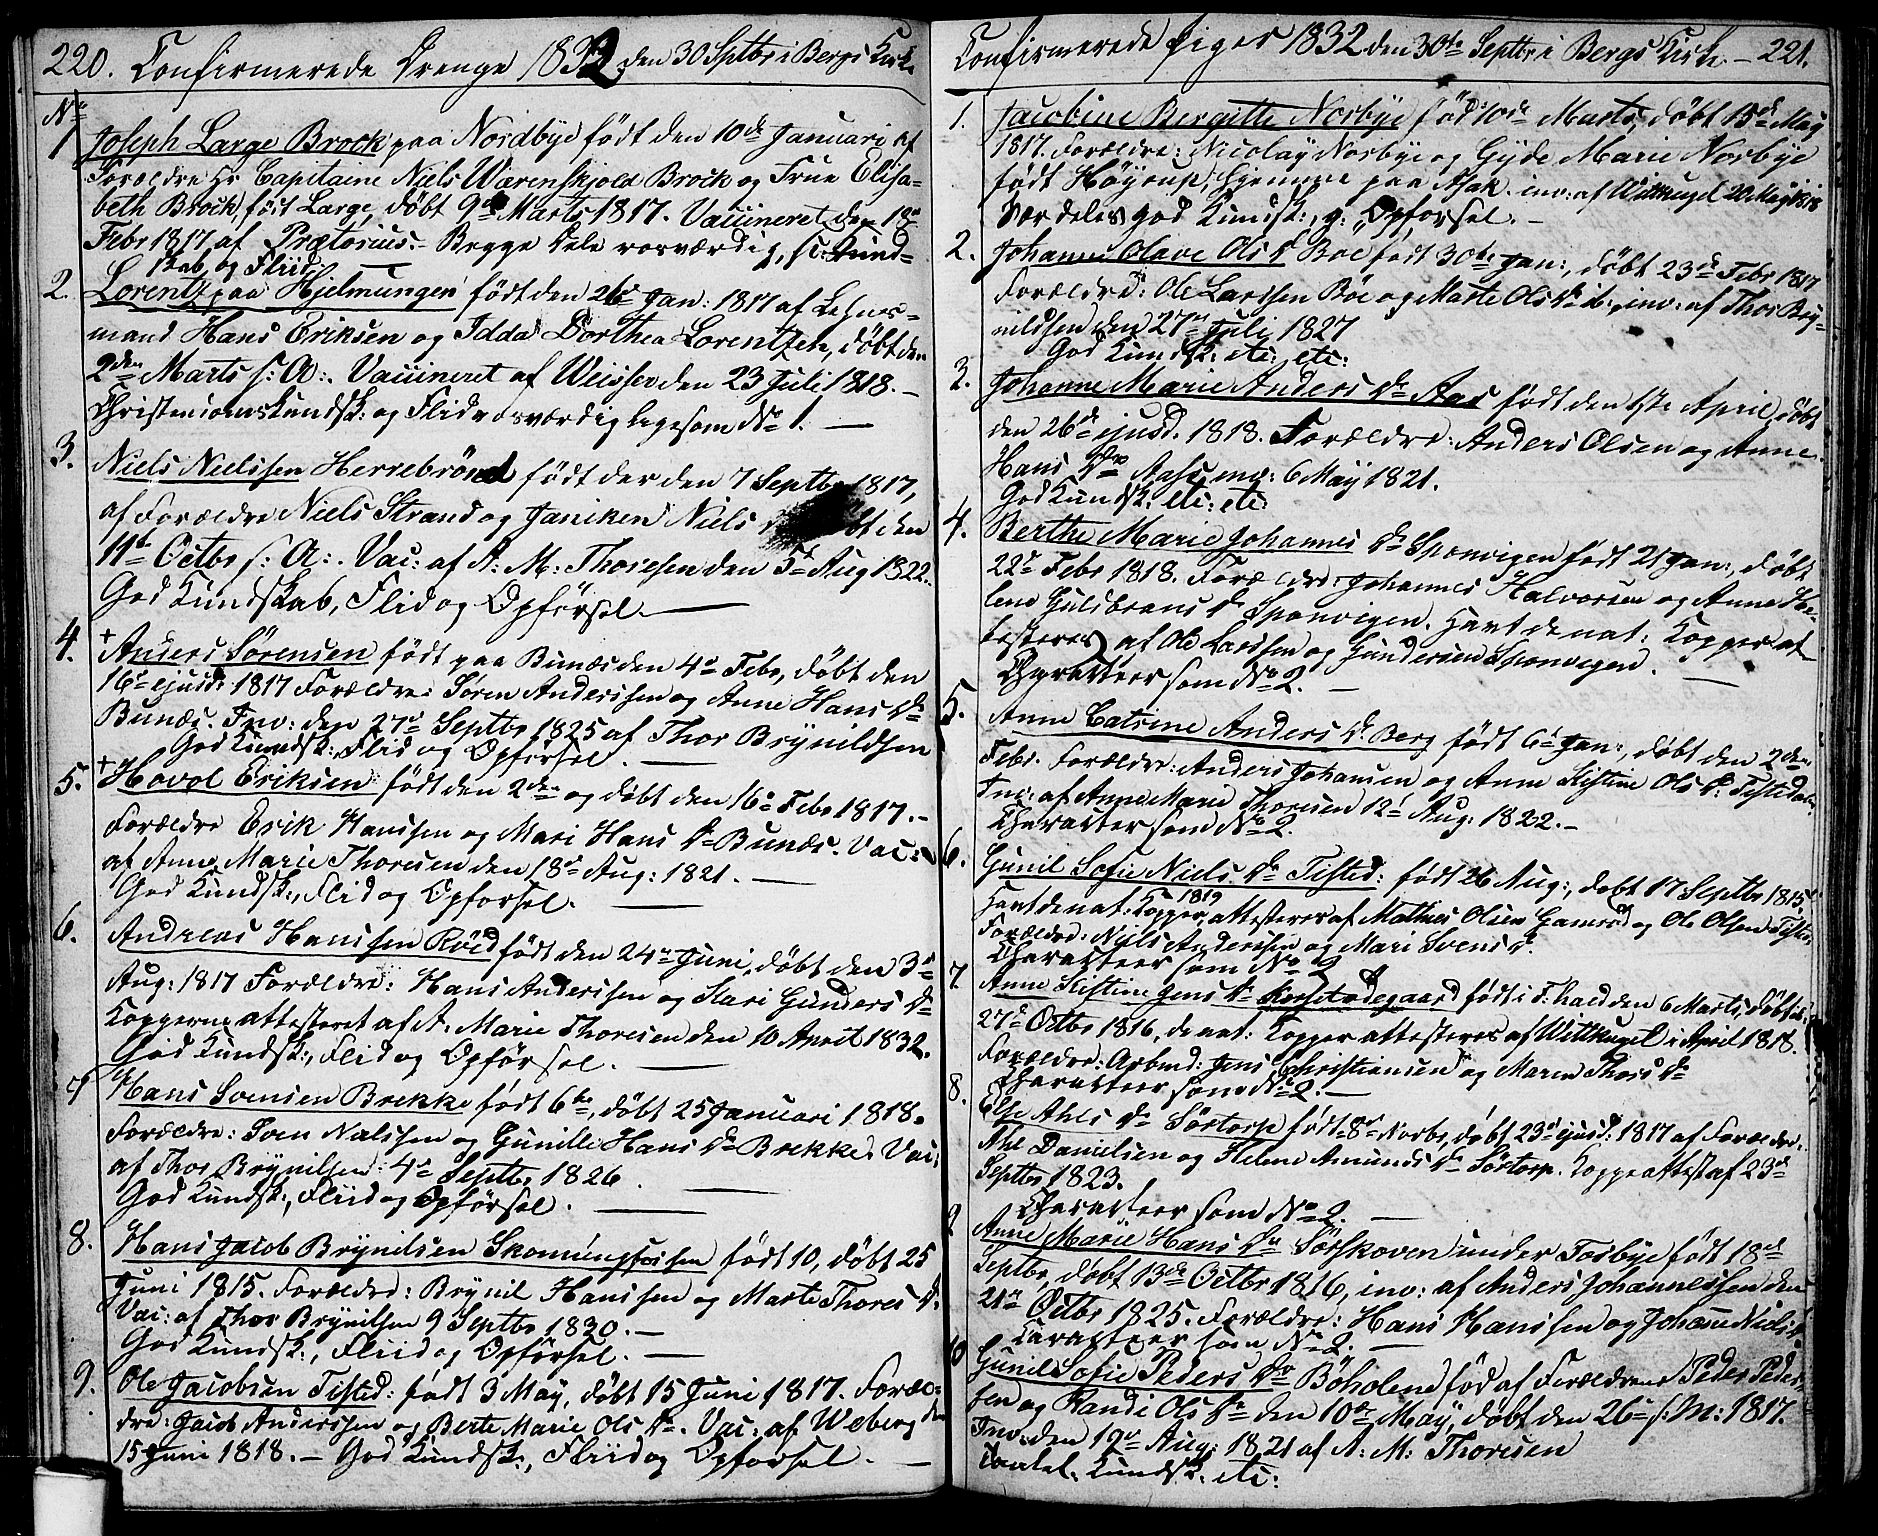 220. Confirmerede Drenge 1832 den 30 Septbr i Bergs Kirke
No
1 Joseph Large Brock paa Nordbye født den 10de Januari af
Forældre Hr Capitaine Niels Wærenskjold Brock og Frue Elisa-
beth Brock født Large, døbt 9de Marts 1817. Vaccineret den
Febr 1817 af Prætorius. Begge Dele rosværdig, sc: Kund-
skab og Fliid
2. Lorentz paa Hjelmungen født den 26de Jan: 1817 af Lehns-
mand Hans Eriksen og Idda Dorthea Lorentzen, døbt den
2den Marts s: A:. Vaccineret af Weisser den 23 Juli 1818. –
Christendomskundsk: og Flid rosværdig ligesom No 1. —
3. Niels Nielssen Herrebrønd født der den 7 Septbr 1817,
af Forældre Niels Strand og Janiken Niels bt den
11te Octbr s: A:. Vac: af A: M: Thoresen den 5te Aug 1822.
God Kundskab, Flid og Opførsel. —
4. + Anders Sørensen født paa Bunæs den 4de Febr, døbt den
16de ejusd: 1817 Forældre: Søren Anderssen og Anne Hans Dr
Bunæs. Inv: den 27de Septbr 1825 af Thor Brynildsen
God Kundsk: Flid og Opførsel. —
5. + Hovol Eriksen født den 2den og døbt den 16de Febr 1817. –
Forældre Erik Hanssen og Mari Hans Dr Bunæs. Vac:
af Anne Marie Thoresen den 18de Aug: 1821. —
God Kundsk:, Flid og Opførsel. —
6. Andreas Hanssen Röed født den 24de Juni, døbt den 3de
Aug: 1817 Forældre: Hans Anderssen og Kari Gunders Dr
Kopperne attesteret af A. Marie Thoresen den 10 April 1832.
God Kundsk:, Flid og Opførsel. —
7 Hans Svensen Brekke født 6te, døbt 25 Januari 1818.
Forældre: Sven Nielssen og Gunille Hans Dr Brekke. Vac:
af Thor Brynilsen 4de Septbr 1826. —
God Kundsk:, Fliid og Opførsel. —
8. Hans Jacob Brynilsen Skonningsfossen født 10, døbt 25
Juni 1815. Forældre: Brynil Hanssen og Marte Thores D.
Vac: af Thor Brynilsen 9 Septbr 1830. —
God Kundsk:, Fliid og Opførsel. —
9. Ole Jacobsen Tisted: født 3 May, døbt 15 Juni 1817. Foræl-
dre: Jacob Anderssen og Berte Marie Ols Dr. Vac: af Weberg den
15 Juni 1818. – God Kundsk:, Fliid og Opførsel. —
Confirmerede Piger 1832 den 30te Septbr i Bergs Kirke. – 221.
1. Jacobine Bergitte Norbye født 10de Marts, døbt 15de May
1817. Forældre: Nicolay Norbye og Gyde Marie Norbye
født Høyrup, hjemme paa Asak. inv: af Wittkugel 20 May 1818
Særdeles god Kundsk:, g: Opførsel. –
2. Johanne Olave Ols Dr Böe født 30te Jan:, døbt 23de Febr 1817
Forældre: Ole Larssen Böe og Marte Ols Dr ib:, inv: af Thor Bry-
nildsen den 27de Juli 1827
God Kundsk: etc: etc:
3. Johanne Marie Anders Dr Aas født den 1ste April, døbt
den 26de ejusd. 1818. Forældre: Anders Olsen og Anne
Hans Dr Aas, inv: 6 May 1821.
God Kundsk: etc: etc:
4. Berthe Marie Johannes Dr Sponvigen født 21 Jan:, døbt
22de Febr 1818. Forældre: Johannes Halvorsen og Anne He-
lene Gulsbrans Dr Sponvigen. Havt de nat: Kopper at-
testeres af Ole Larssen og Gundersen Sponvigen. —
Charakteer som No 2. —
5. Anne Catrine Anders Dr. Berg født 6te Jan:, døbt den 2den
Febr. Forældre: Anders Johansen og Anne Kistine Ols Dr. Tistedalen
Inv: af Anne Marie Thoresen 12te Aug: 1822. –
Charakter som No 2.
6. Gunil Sofie Niels Dr Tisted: født 26 Aug:, døbt 17 Septbr 1815,
Havt de nat: Kopper 1819 attesteres af Mathies Olsen Gamrød og Ole Olsen Tisted:
Forældre: Niels Anderssen og Mari Svens D.
Charakteer som No 2
7. Anne Kistine Jens Dr Korsetødegaard født i F:hald den 6 Marts, døbt ib:
27de Octbr 1816, de nat: Kopper attesteres af Wittkugel i April 1818.
Forældre: Arbmd: Jens Christiansen og Maren Thors Dr
Charakteer som No 2. —
8. Else Ahls Dr Sørtorp født 8de Novbr, døbt 23de ejusd: 1817 af Forældre
Ahl Danielsen og Helene Amunds Dr Sørtorp. Koppeattest af 23de
Septbr 1823.
Charakteer som No 2. —
9 Anne Marie Hans Dr Sörskoven under Torbye født 18de
Septbr, døbt 13de Octbr 1816, inv: af Anders Johannessen den
21de Octbr 1825. Forældre: Hans Hanssen og Johanne Niels D
Carakteer som No 2. —
10 Gunil Sofie Peders Dr Böholene fød af Forældrene Peder Peder-
sen og Randi Ols Dr den 10de May, døbt den 26de s: M: 1817.
Inv: den 19de Aug: 1821 af A: M: Thoresen
Kundsk: etc: